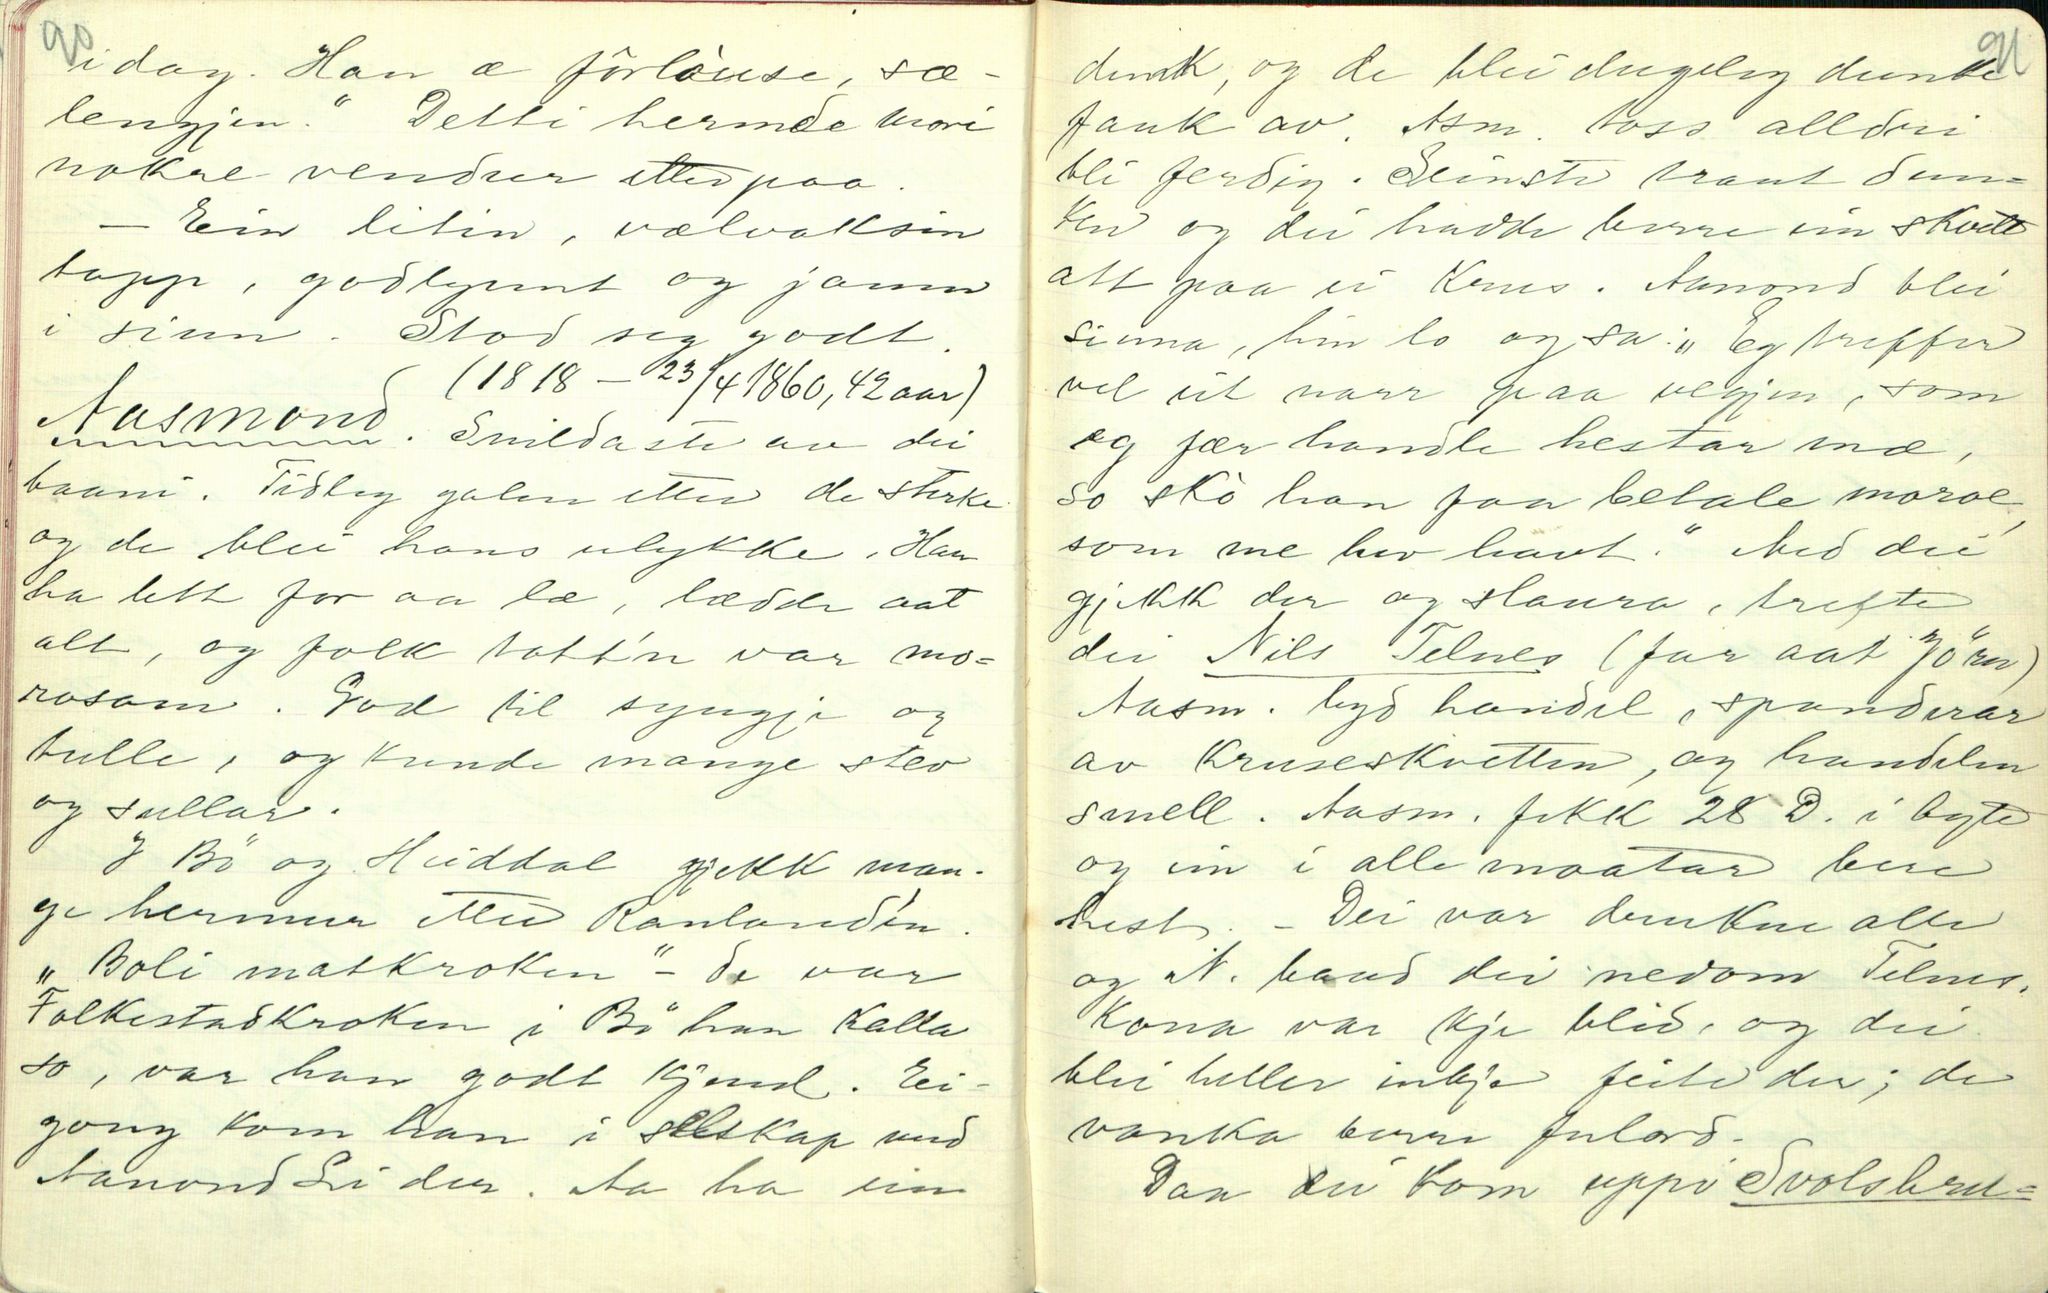 90
idag. Han æ förlöuse, sæ-
lengjen." Detti hermde mori
nokre vendur etterpaa.
— Ein liten, vælvaksin
tapp, godlyunt og jamn
i sinn. Stod seg godt.
(1818 — 23/4 1860, 42 aar)
Aasmond. Snildaste av dei
baani. Tidleg galen etter de sterke
og de blei hans ulykke. Han
ha lett for aa læ, lædde aat
alt, og folk tott'n var mo-
rosam. God til syngje og
tulle, og kunde mange stev
og sullar.
I Bö og Heiddal gjekk man-
ge hermur etter Ranlandèn.
„Boli matkroken" - de var
Folkestadkroken i Bö han kalla
so, var han godt kjend. Ei-
gong kom han i selskap med
Aanond Li der. Aa ha ein
91
dunk, og de blei dugeleg dunke
fauk av. Asm. toss alldri
bli ferdig. Seinste traut dun-
ken og dei hadde berre ein skvett
att paa ei krus. Aanond blei
sinna, hin lo og sa: „Eg treffer
vel eit narr paa vegjen, som
eg fær handle hestar mæ,
so skò han faa betale moroe,
som me hev havt." Med dei
gjekk der og slaura, trefte
dei Nils Telnes (far aat Jörn)
Aasm. byd handel, spanderar
av kruseskvetten, og handelen
smell. Aasm. fekk 28 D. i byte
og ein i alle maatar bere
hest. - Dei var drukne alle
og N. baud dei nedom Telnes.
Kona var kje blid, og dei
blei heller inkje feite der; de
vanka berre fulord.
Daa dei kom uppi Svolsbru-